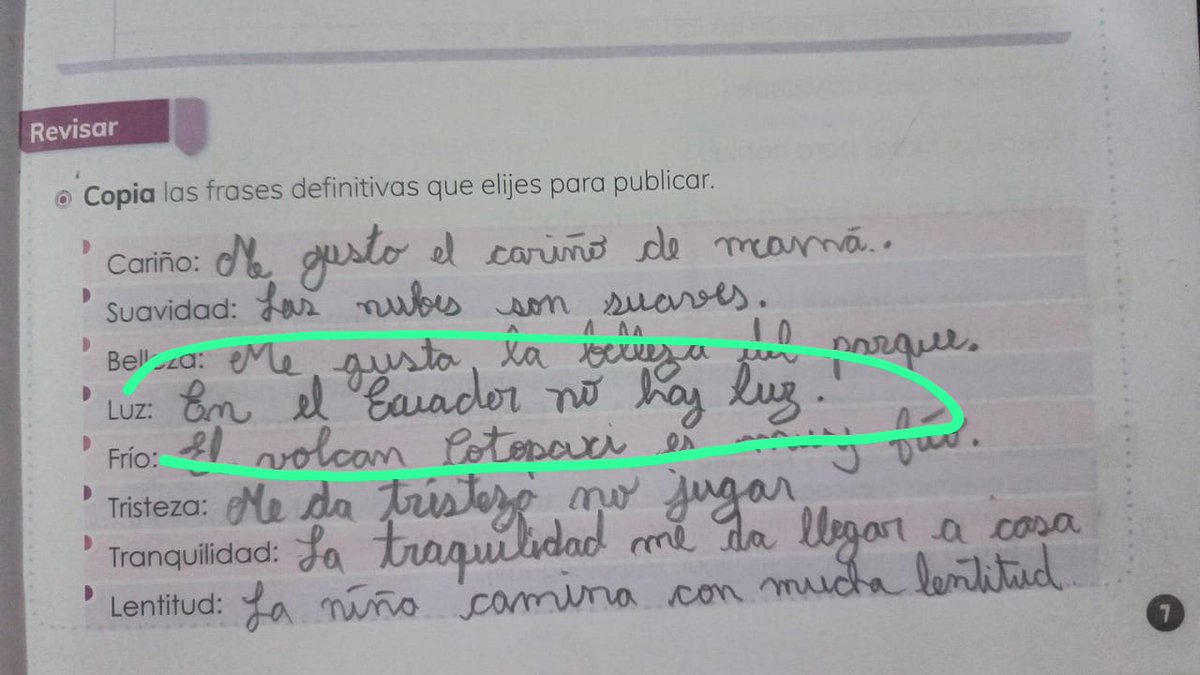 Revisar
Copia las frases definitivas que elijes para publicar.
Cariño: Me gusto el cariño de mamá..
Suavidad: Las nubes son suaves.
Belleza: Me gusta la belleza del parque.
Luz: En el Ecuador no hay luz.
Frío: El volcan Cotopaxi es muy frío.
Tristeza: Me da tristeza no jugar
Tranquilidad: La traquilidad me da llegar a casa
Lentitud: La niña camina con mucha lentitud
7